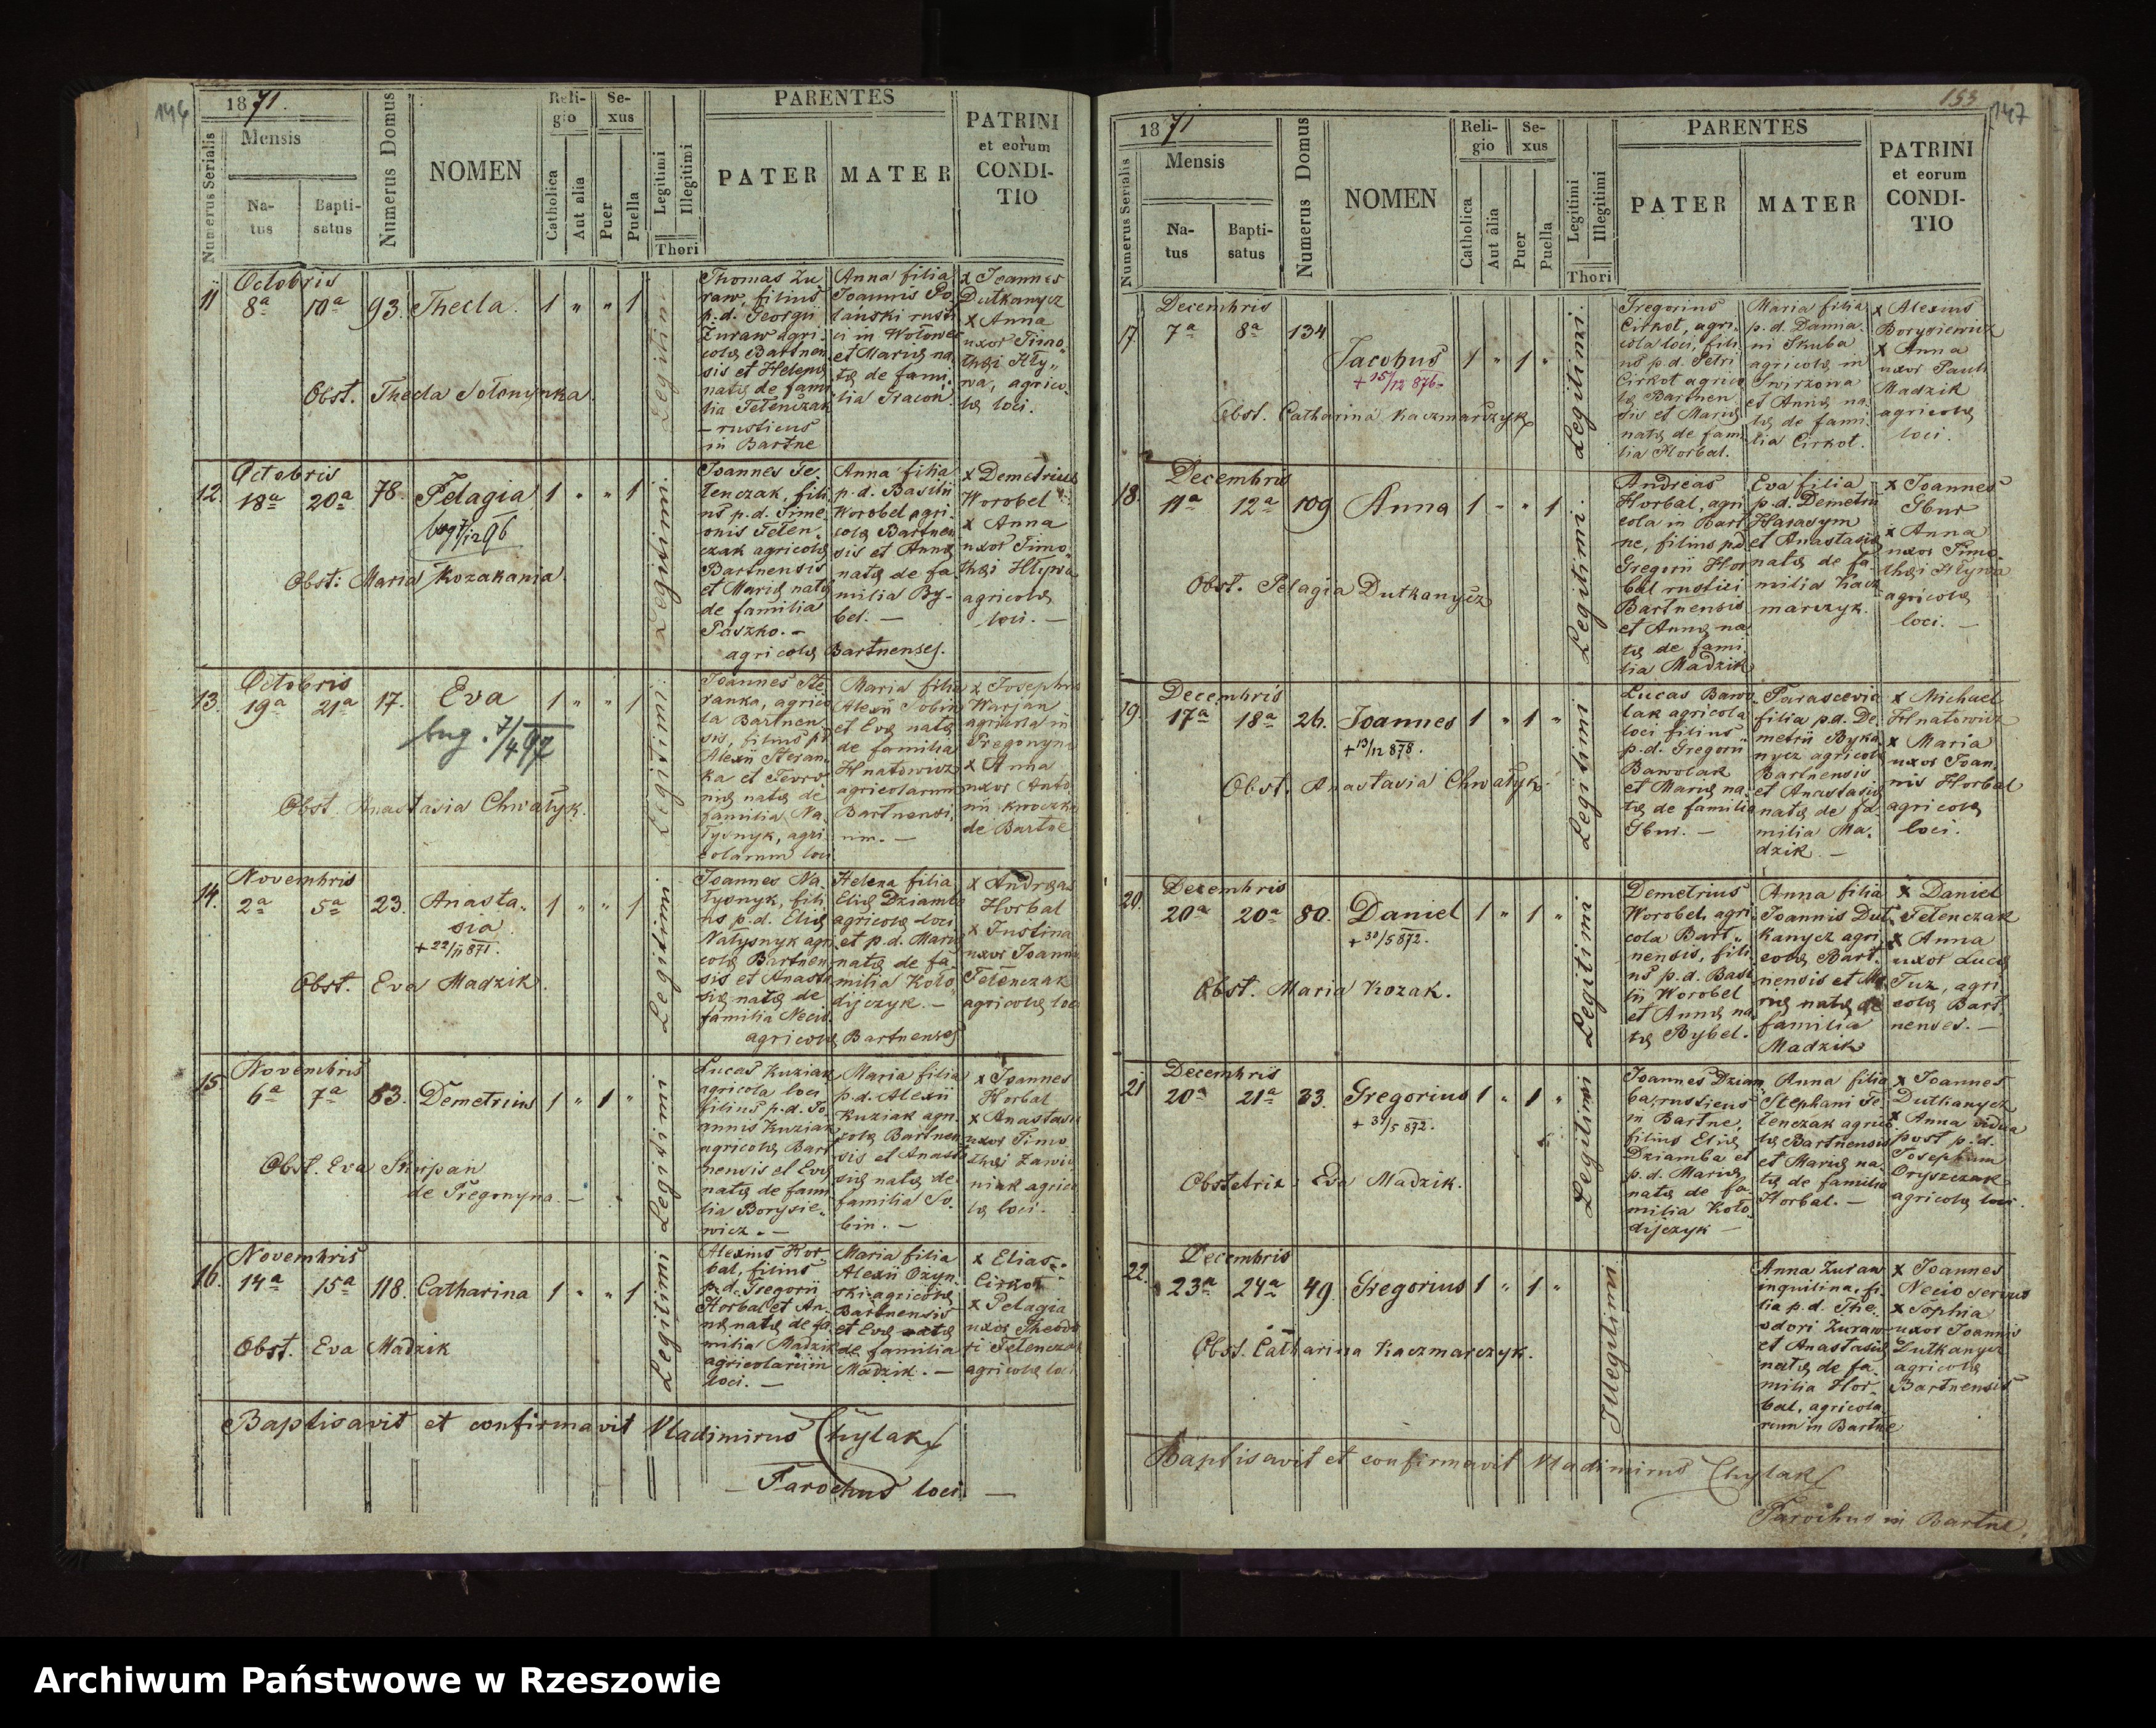 146
1871.
Numerus Serialis
Mensis
Na-
tus
Bapti-
satus
Numerus Domus
NOMEN
Reli-
gio
Catholica
Aut alia
Se-
xus
Puer
Puella
Legitimi
Illegitimi
Thori
PARENTES
PATER
MATER
PATRINI
et eorum
CONDI-
TIO
11
Octobris
8a 10a 93. Thecla. 1 " " 1
Legitimi
Obst. Thecla Sołonynka.
Thomas Żu-
raw, filius
p. d. Georgii
Żuraw agri-
colę Bartnen
sis et Helenę
natę de fami
lia Felenczak
– rusticus
in Bartne
Anna filia
Joannis Po-
lański rusti
ci in Wołowec
et Marię na
tę de fami-
lia Gracoń.
x Joannes
Dutkanycz
x Anna
uxor Timo-
thęi Hły-
wa, agrico-
lę loci.
12.
Octobris
18a 20a 78. Pelagia 1 " " 1
Legitimi.
Obst: Maria Kozakania.
Joannes Fe-
lenczak, fili
us p. d. Sime
onis Felen-
czak agricolę
Bartnensis
et Marię natę
de familia
Paszko. –
Anna filia
p. d. Basilii
Worobel agri-
colę Bartnen
sis et Annę
natę de fa-
milia By-
bel. –
agricolę Bartnenses.
x Demetrius
Worobel
x Anna
uxor Timo-
thęi Hływa
agricolę
loci. –
13.
Octobris
19a 21a 17. Eva 1 " " 1
Legitimi.
Obst. Anastasia Chwałyk.
Maria filia
Alexii Sobin
et Evę natę
de familia
Hnatowicz
agricolarum
Bartnensi-
um. –
x Josephus
Warjan
agricola in
Pregonyna
x Anna
uxor Anto-
nii Kroczka
de Bartne
14.
Novembris
2a 5a 23. Anasta-
sia 1 " " 1
+ 22/11 871.
Legitimi
Obst. Eva Madzik.
Joannes Na-
tysnyk, fili
us p. d. Elię
Natysnyk agri
colę Bartnen
sis et Anasta
się natę de
familia Necio.
Helena filia
Elię Dziamba
agricolę loci
et p. d. Marię
natę de fa
milia Koło
dijczyk. –
agricolę Bartnenses
x Andreas
Horbal
x Justina
uxor Joannis
Felenczak
agricolę loci
15.
Novembris
6a 7a 83. Demetrius 1 " 1 "
Legitimi
Obst. Eva Skripan
de Pregonyna. –
Lucas Kuziak
agricola loci
filius p. d. Jo-
annis Kuziak
agricolę Bart
nensis et Evę
natę de fami
lia Borysie-
wicz. –
Maria filia
p. d. Alexii
Kuziak agri-
colę Bartnen
sis et Anasta
się natę de
familia So-
bin. –
x Joannes
Horbal
x Anastasia
uxor Timo
thęi Zawi-
niak agrico
lę loci.
16.
Novembris
14a 15a 118. Catharina 1 " " 1
Legitimi
Obst. Eva Madzik
Alexius Hor
bal, filius
p. d. Gregorii
Horbal et An-
nę natę de fa
milia Madzik
agricolarum
loci. –
Maria filia
Alexii Ożyn-
ski agricolę
Bartnensis
et Evę natę
de familia
Madzik. –
x Elias
Cirkot
x Pelagia
uxor Theodo
ri Felenczak
agricolę loci
Baptisavit et confirmavit Vladimirus Chylak
– Parochus loci. –
153
147
1871
Numerus Serialis
Mensis
Na-
tus
Bapti-
satus
Numerus Domus
NOMEN
Reli-
gio
Catholica
Aut alia
Se-
xus
Puer
Puella
Legitimi
Illegitimi
Thori
PARENTES
PATER
MATER
PATRINI
et eorum
CONDI-
TIO
17.
Decembris
7a 8a 134 Jacobus 1 " 1 "
+ 15/12 876.
Legitimi.
Obst. Catharina Kaczmarczyk
Gregorius
Cirkot, agri-
cola loci, fili
us p. d. Petri
Cirkot agrico
lę Bartnen
sis et Marię
natę de fami
lia Horbal.
Maria filia
p. d. Damia-
ni Skuba
agricolę in
Swirzowa
et Annę na
tę de fami
lia Cirkot.
x Alexius
Borysiewicz
x Anna
uxor Pauli
Madzik
agricolę
loci.
18.
Decembris
11a 12a 109 Anna 1 - " 1
Legitimi.
Obst. Pelagia Dutkanycz
Andreas
Horbal, agri
cola in Bart
ne, filius pd
Gregorii Hor
bal rustici
Bartnensis
et Annę na
tę de fami-
lia Madzik
Eva filia
p. d. Demetrii
Harasym
et Anastasię
natę de fa-
milia Kacz
marczyk.
x Joannes
Gbur
x Anna
uxor Timo-
thęi Hływa
agricolę
loci. –
19.
Decembris
17a 18a 26. Joannes 1 " 1 "
+ 13/12 878.
Legitimi
Obst. Anastasia Chwałyk.
Lucas Bawo
lak agricola
loci filius
p. d. Gregorii
Bawolak
et Marię na-
tę de familia
Gbur. –
Parascevia
filia p. d. De-
metrii Byka
nycz agricolę
Bartnensis
et Anastasię
natę de fa-
milia Ma-
dzik. –
x Michael
Hnatowicz
x Maria
uxor Joan-
nis Horbal
agricolę
loci.
20.
Decembris
20a 20a 80. Daniel 1 " 1 "
+ 30/5 872.
Legitimi
Obst. Maria Kozak.
Demetrius
Worobel, agri
cola Bart-
nensis, fili
us p. d. Basi
lii Worobel
et Annę na
tę Bybel.
Anna filia
Joannis Dut
kanycz agri
colę Bart-
nensis et Ma
rię natę de
familia
Madzik
x Daniel
Felenczak
x Anna
uxor Lucę
Tuz, agri-
colę Bart-
nenses. –
21
Decembris
20a 21a 33. Gregorius 1 " 1 "
+ 31/5 872.
Legitimi
Obstetrix: Eva Madzik.
Joannes Dziam
ba, rusticus
in Bartne,
filius Elię
Dziamba et
p. d. Marię
natę de fa-
milia Koło
dijczyk –
Anna filia
Stephani Fe-
lenczak agrico
lę Bartnensis
et Marię na-
tę de familia
Horbal. –
x Joannes
Dutkanycz
x Anna vidua
post p. d.
Josephum
Oryszczak
agricolę loci.
22.
Decembris
23a 24a 49. Gregorius 1 " 1 "
Illegitimi
Obst. Catharina Kaczmarczyk.
Anna Żuraw
inquilina, fi-
lia p. d. The-
odori Żuraw
et Anastasię
natę de fa-
milia Hor-
bal, agricola
rum in Bartne
x Joannes
Necio servus
x Sophia
uxor Joannis
Dutkanycz
agricolę
Bartnensis
Baptisavit et confirmavit Vladimirus Chylak
Parochus in Bartne.
Archiwum Państwowe w Rzeszowie